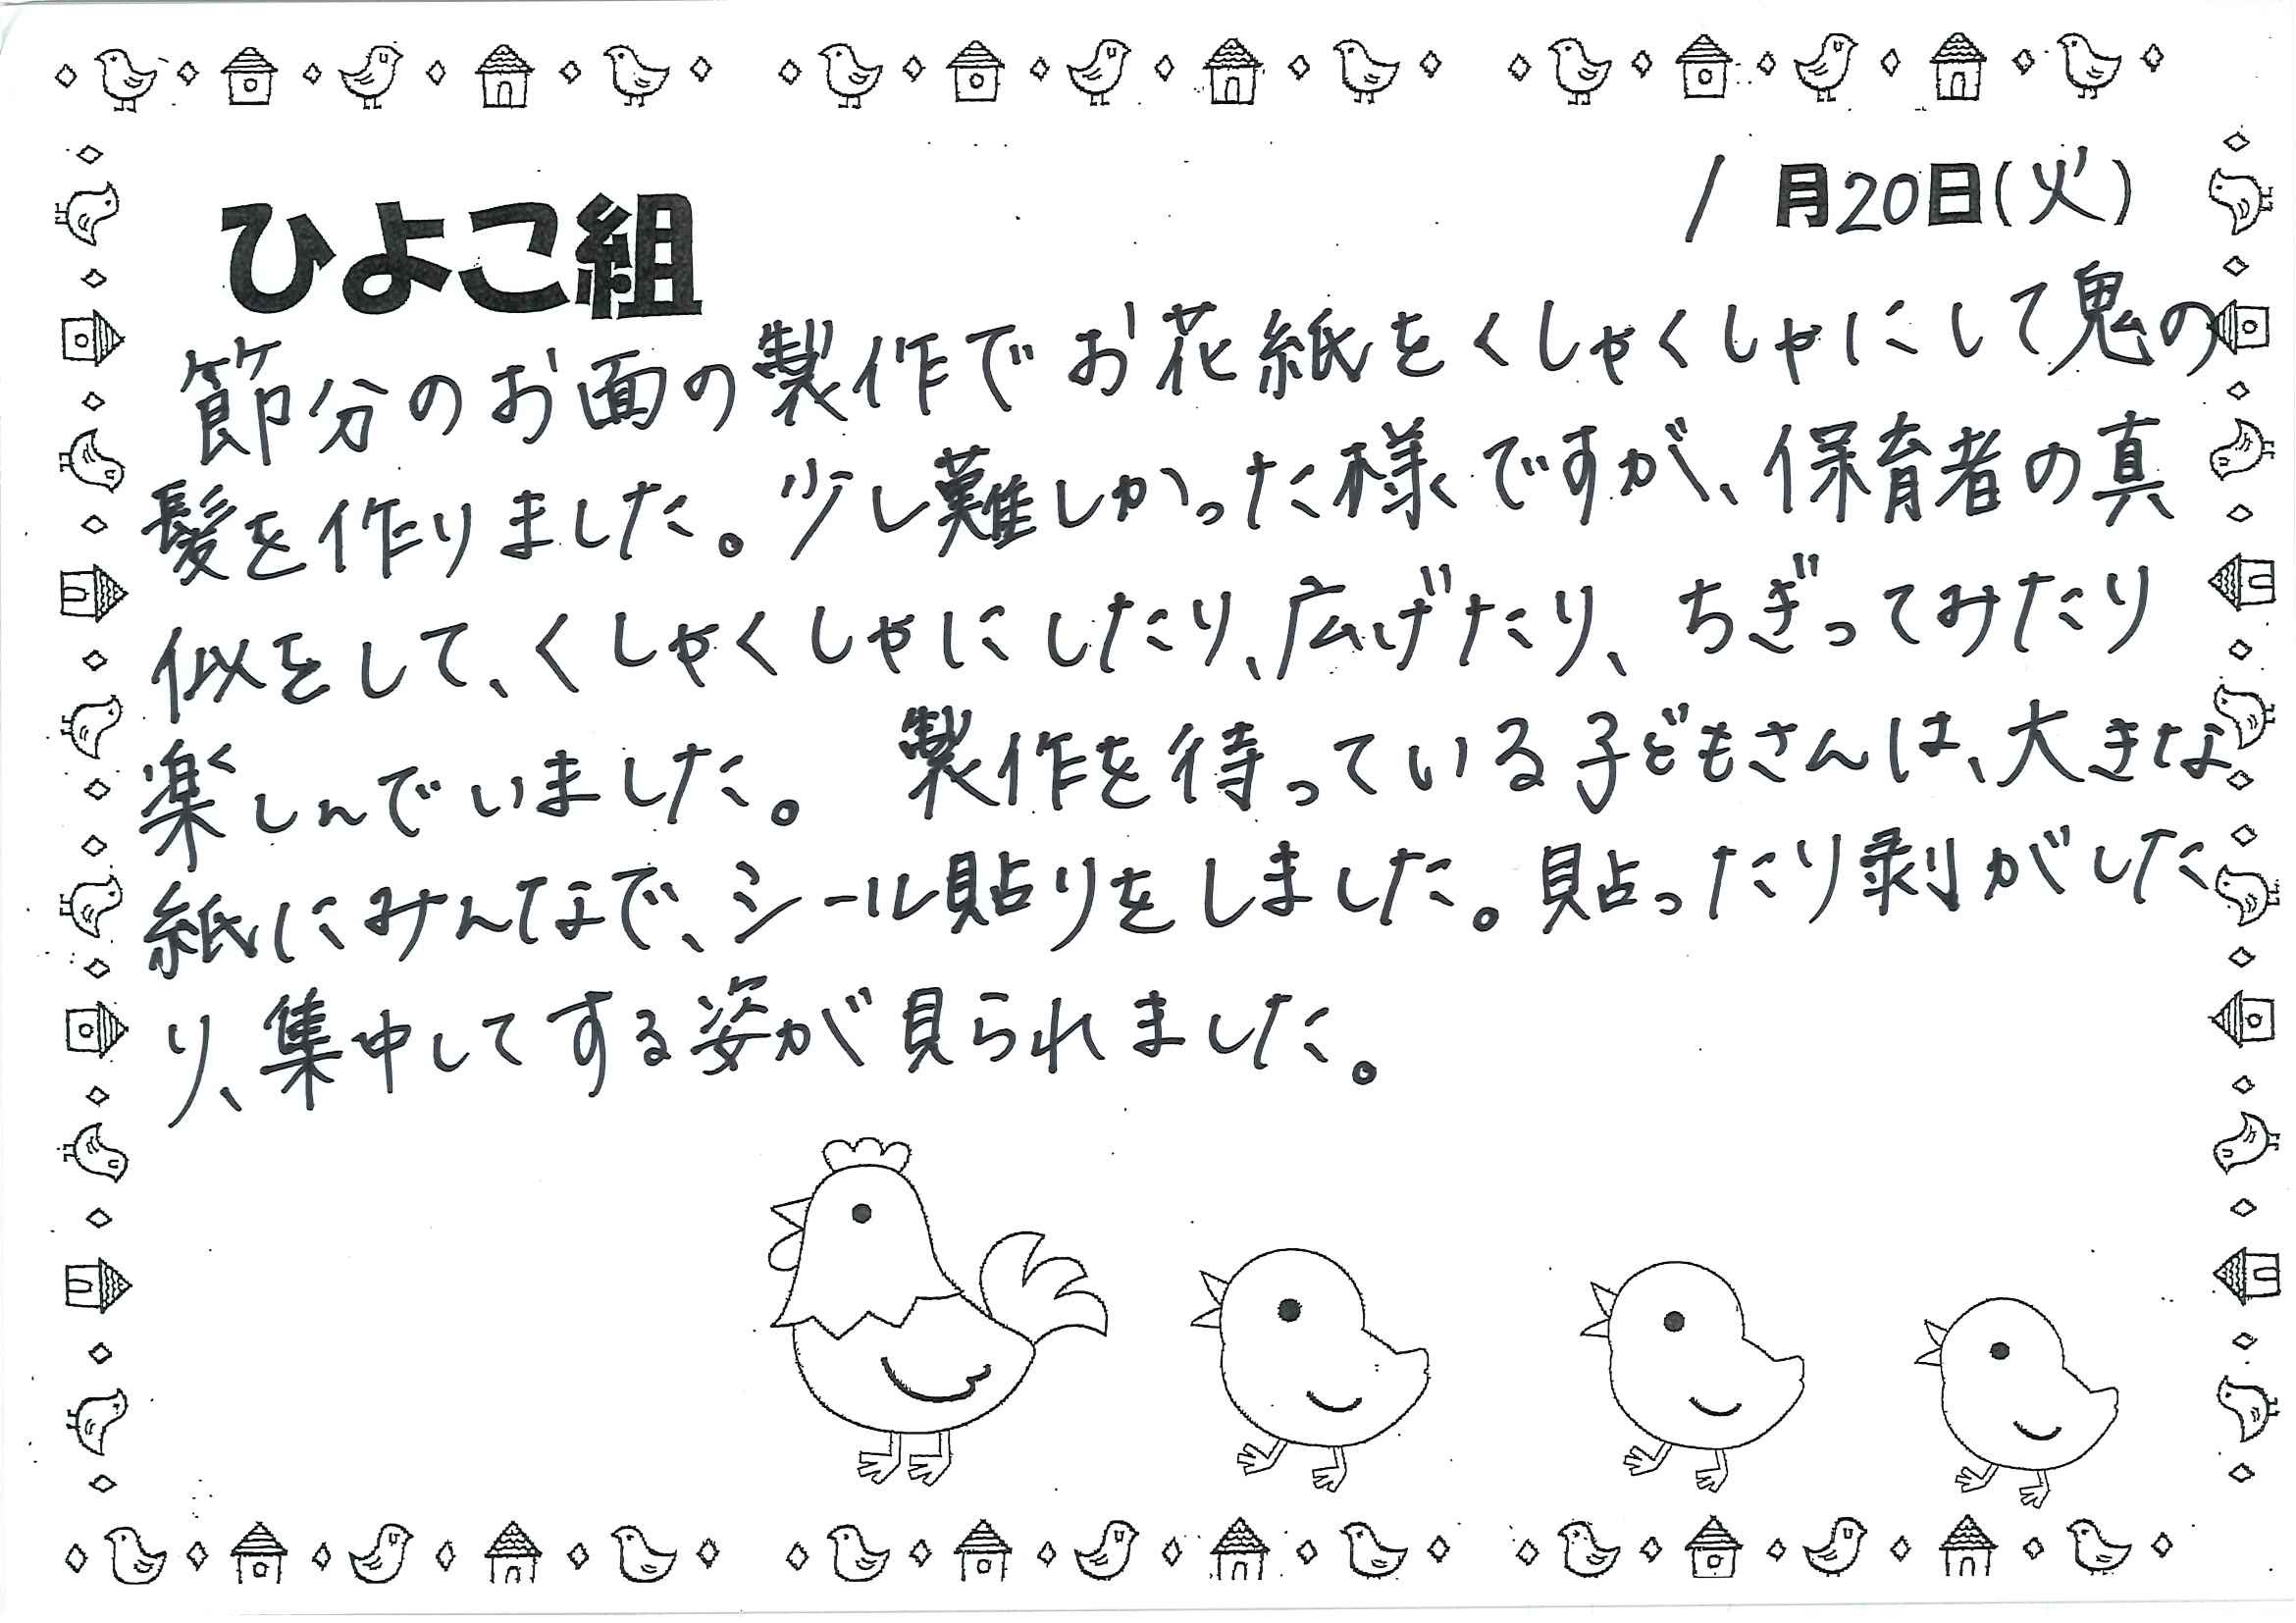 1月20日(火)
ひよこ組
節分のお面の製作でお花紙をくしゃくしゃにして鬼の
髪を作りました。少し難しかった様ですが、保育者の真
似をして、くしゃくしゃにしたり、広げたり、ちぎってみたり
楽しんでいました。 製作を待っている子どもさんは、大きな
紙にみんなで、シール貼りをしました。貼ったり剥がした
り、集中してする姿が見られました。